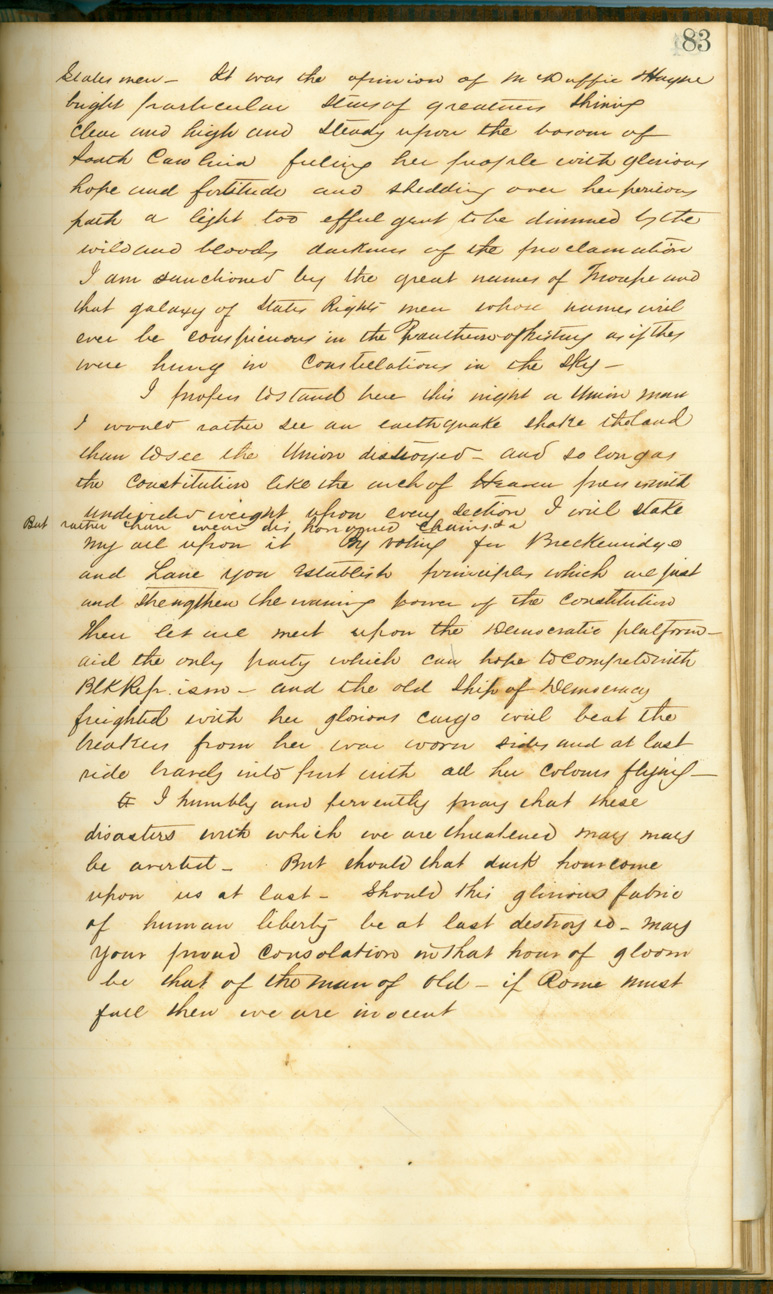 83
States men – It was the opinion of McDuffie & Hayne
bright particular stars of greatness shining
clear and high and steady upon the bosom of
South Carolina filling her people with glorious
hope and fortitude and shedding over her perilous
path a light too effulgent to be dimmed by the
wild and bloody darkness of the proclamation
I am sanctioned by the great names of Troupe and
that galaxy of States Rights men whose names will
ever be conspicuous in the Pantheon of history as if they
were hung in constellations in the sky –
I profess to stand here this night a Union man
I would rather see an earthquake shake the land
than to see the Union destroyed – and so long as
the constitution like the arch of Heaven press with
undivided weight upon every section I will stake
But rather than wear dishonored chains &a
my all upon it By voting for Breckenridge
and Lane you establish principles which are just
and strengthen the waning power of the constitution
Then let all meet upon the Democratic platform –
aid the only party which can hope to compete with
Blk Rep. ism – and the old Ship of Democracy
freighted with her glorious cargo will beat the
breakers from her war worn sides and at last
ride bravely into port with all her colours flying –
I humbly and fervently pray that these
disasters with which we are threatened may may
be averted – But should that dark hour come
upon us at last – Should this glorious fabric
of human liberty be at last destroyed – may
your proud consolation in that hour of gloom
be that of the man of old – if Rome must
fall then we are inocent